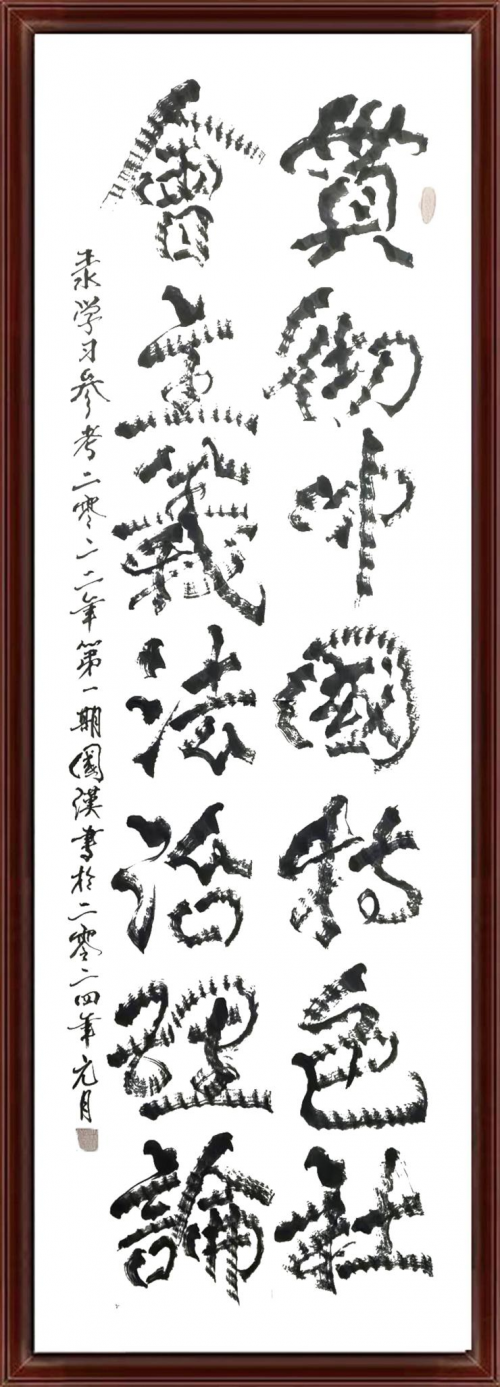 貫彻中國特色社
會主義法治理論
录学习参考二零二二年第一期國漢書於二零二四年元月